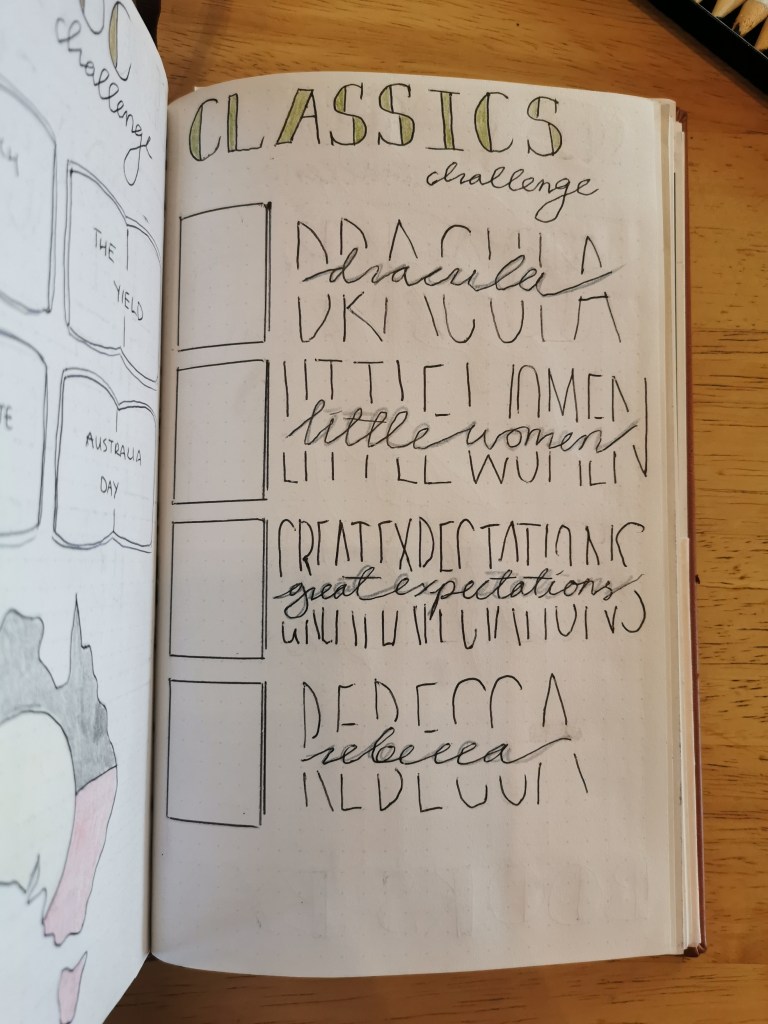 challenge
THE
YIELD
AUSTRALIA
DAY
CLASSICS
challenge
DRACULA
dracula
LITTLE WOMEN
little women
GREAT EXPECTATIONS
great expectations
REBECCA
rebecca